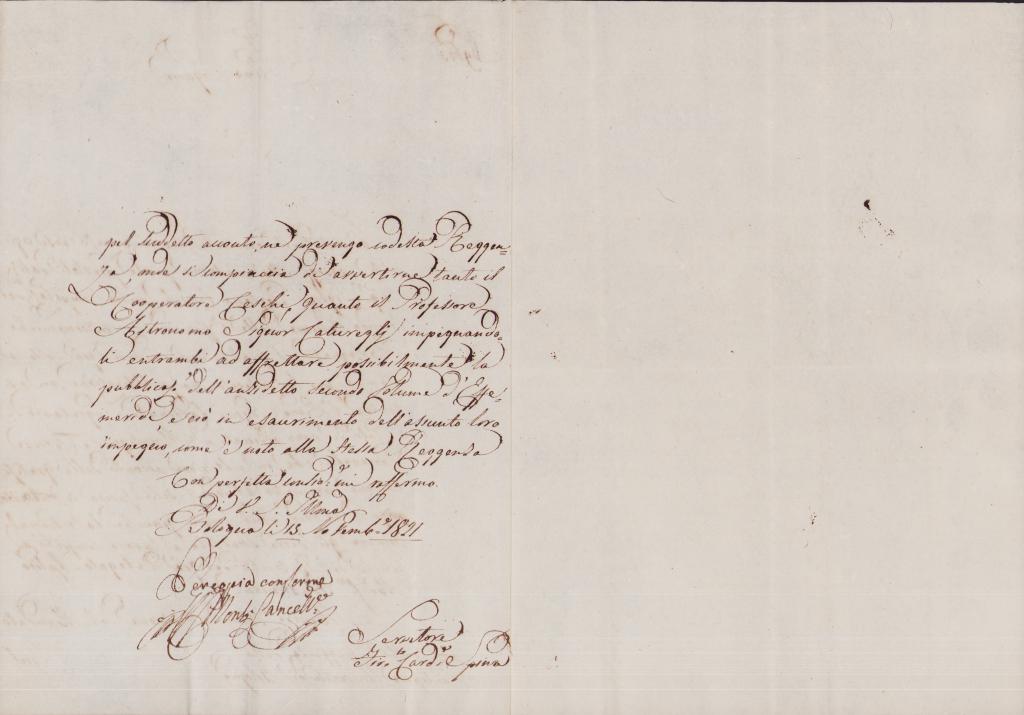 pel suddetto acconto, ne prevengo codesta Reggen=
za, onde si compiaccia di avvertirne tanto il
Cooperatore Ceschi, quanto il Professore
Astronomo Signor Caturegli impegnando-
li entrambi ad affrettare possibilmente la
pubblicaz.e dell'antidetto secondo Volume d'Effe=
meridi, e ciò in esaurimento dell'assunto loro
impegno, come è noto alla stessa Reggenza
Con perfetta consid.e mi raffermo
Di V. S. Illma
Bologna li 13 Novemb.e 1821
Per copia conforme
Monti Cancell.e
Servitore
Fir.to Card.e Spina